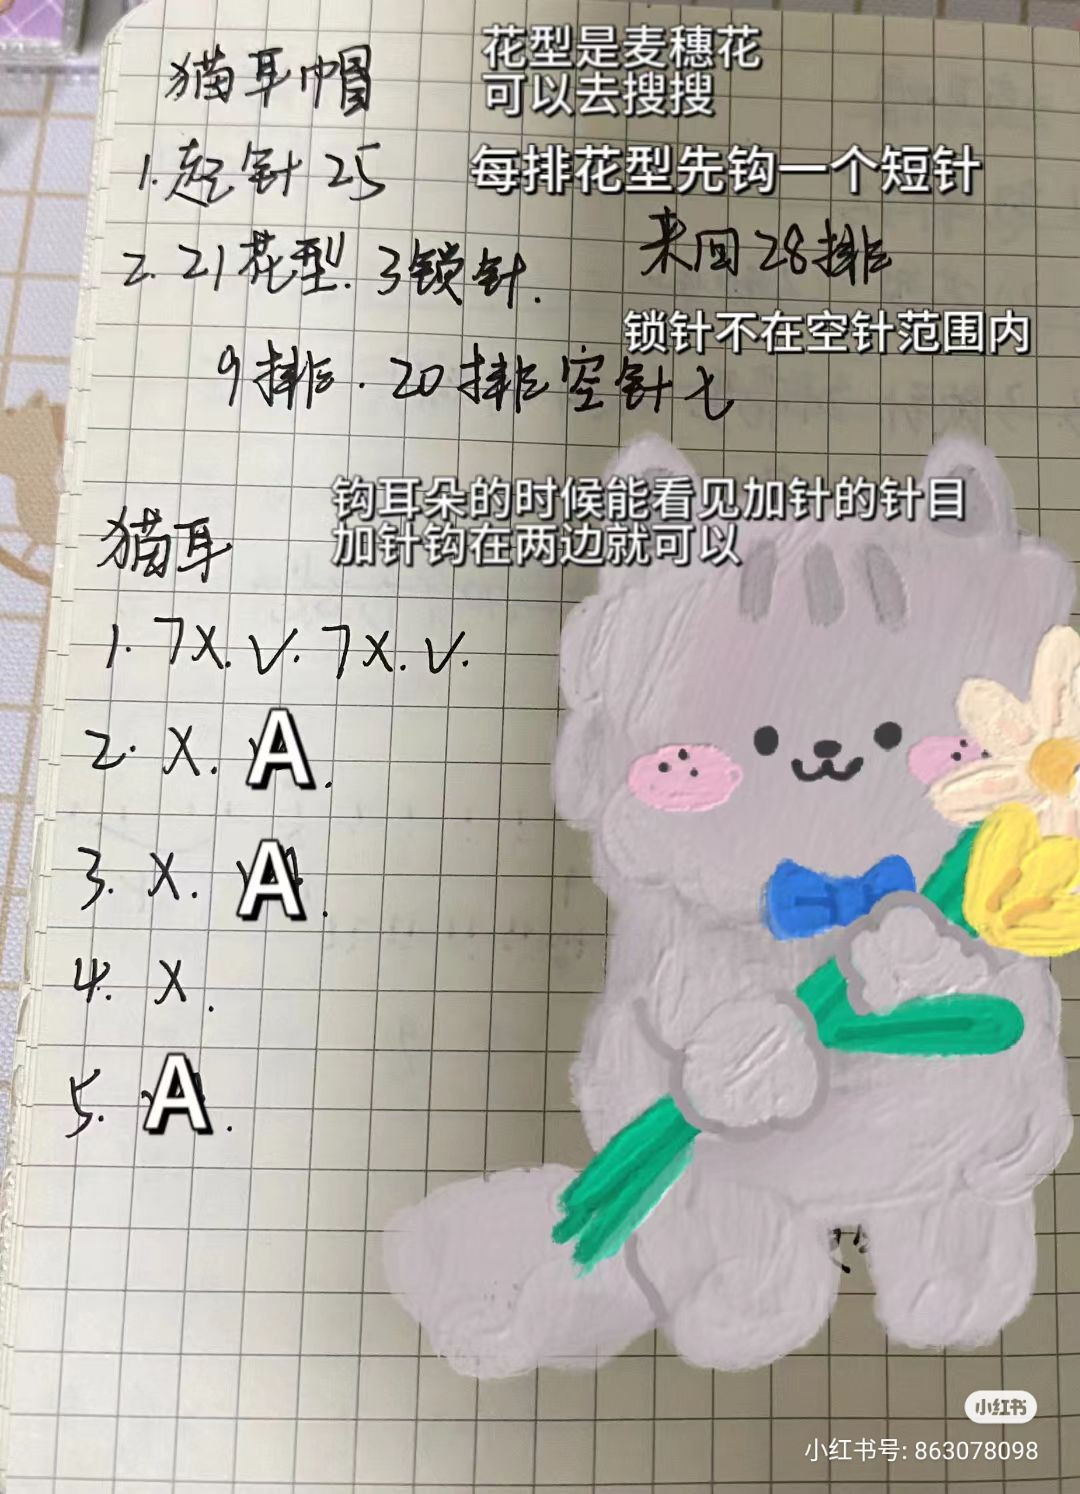 猫耳帽
花型是麦穗花
可以去搜搜
1.起针 25
每排花型先钩一个短针
2. 21花型. 3锁针.
来回28排
锁针不在空针范围内
9排. 20排空针七
猫耳
钩耳朵的时候能看见加针的针目
加针钩在两边就可以
1. 7X. V. 7X. V.
2. X. A.
3. X. A.
4. X.
5. A.
小红书
小红书号: 863078098